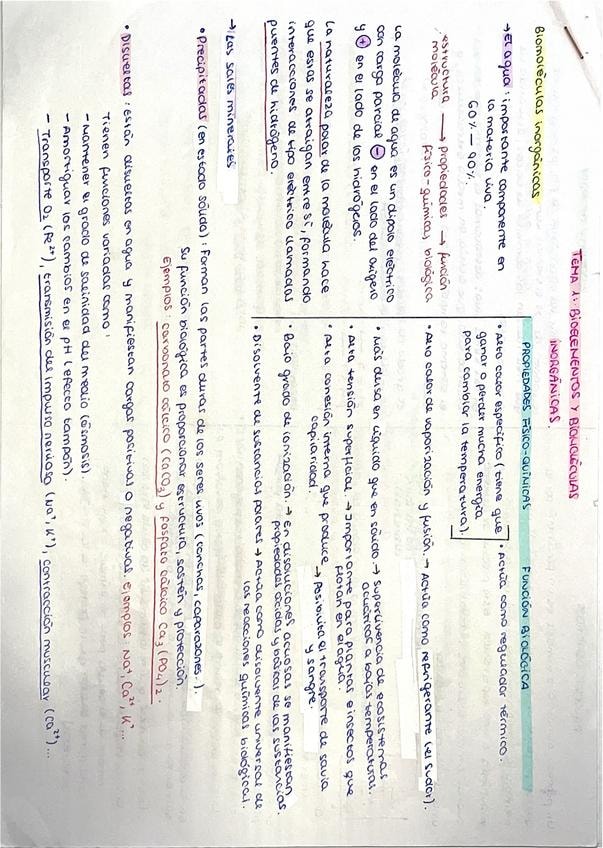 TEMA 1: BIOELEMENTOS Y BIOMOLÉCULAS
INORGÁNICAS.
Biomoléculas inorgánicas
→ El agua: importante componente en
la materia viva.
60% - 90%.
estructura → propiedades → función
molécula físico-químicas biológica
La molécula de agua es un dipolo eléctrico
con carga parcial ⊖ en el lado del oxígeno
y ⊕ en el lado de los hidrógenos.
La naturaleza polar de la molécula hace
que estas se atraigan entre sí, formando
interacciones de tipo eléctrico llamadas
puentes de hidrógeno.
PROPIEDADES FÍSICO-QUÍMICAS FUNCIÓN BIOLÓGICA
• Alto calor específico (tiene que • Actúa como regulador térmico.
ganar o perder mucha energía
para cambiar la temperatura).
• Alto calor de vaporización y fusión → Actúa como refrigerante (el sudor).
• Más densa en líquido que en sólido → Supervivencia de ecosistemas
acuáticos a bajas temperaturas.
• Alta tensión superficial → Importante para plantas e insectos que
flotan en el agua.
• Alta cohesión interna que produce → Posibilita el transporte de savia
capilaridad. y sangre.
• Bajo grado de ionización. → En disoluciones acuosas se manifiestan
propiedades ácidas y básicas de las sustancias.
• Disolvente de sustancias polares → Actúa como disolvente universal de
las reacciones químicas biológicas.
→ Las sales minerales
• Precipitadas (en estado sólido): Forman las partes duras de los seres vivos (conchas, caparazones..).
Su función biológica es proporcionar estructura, sostén y protección.
Ejemplos: carbonato cálcico (CaCO3) y fosfato cálcico Ca3(PO4)2.
• Disueltas: están disueltas en agua y manifiestan cargas positivas o negativas. Ejemplos: Na+, Ca2+, K+...
Tienen funciones variadas como:
- Mantener el grado de salinidad del medio (ósmosis).
- Amortiguar los cambios en el pH (efecto tampón).
- Transporte O2 (Fe2+), transmisión del impulso nervioso (Na+, K+), contracción muscular (Ca2+)...